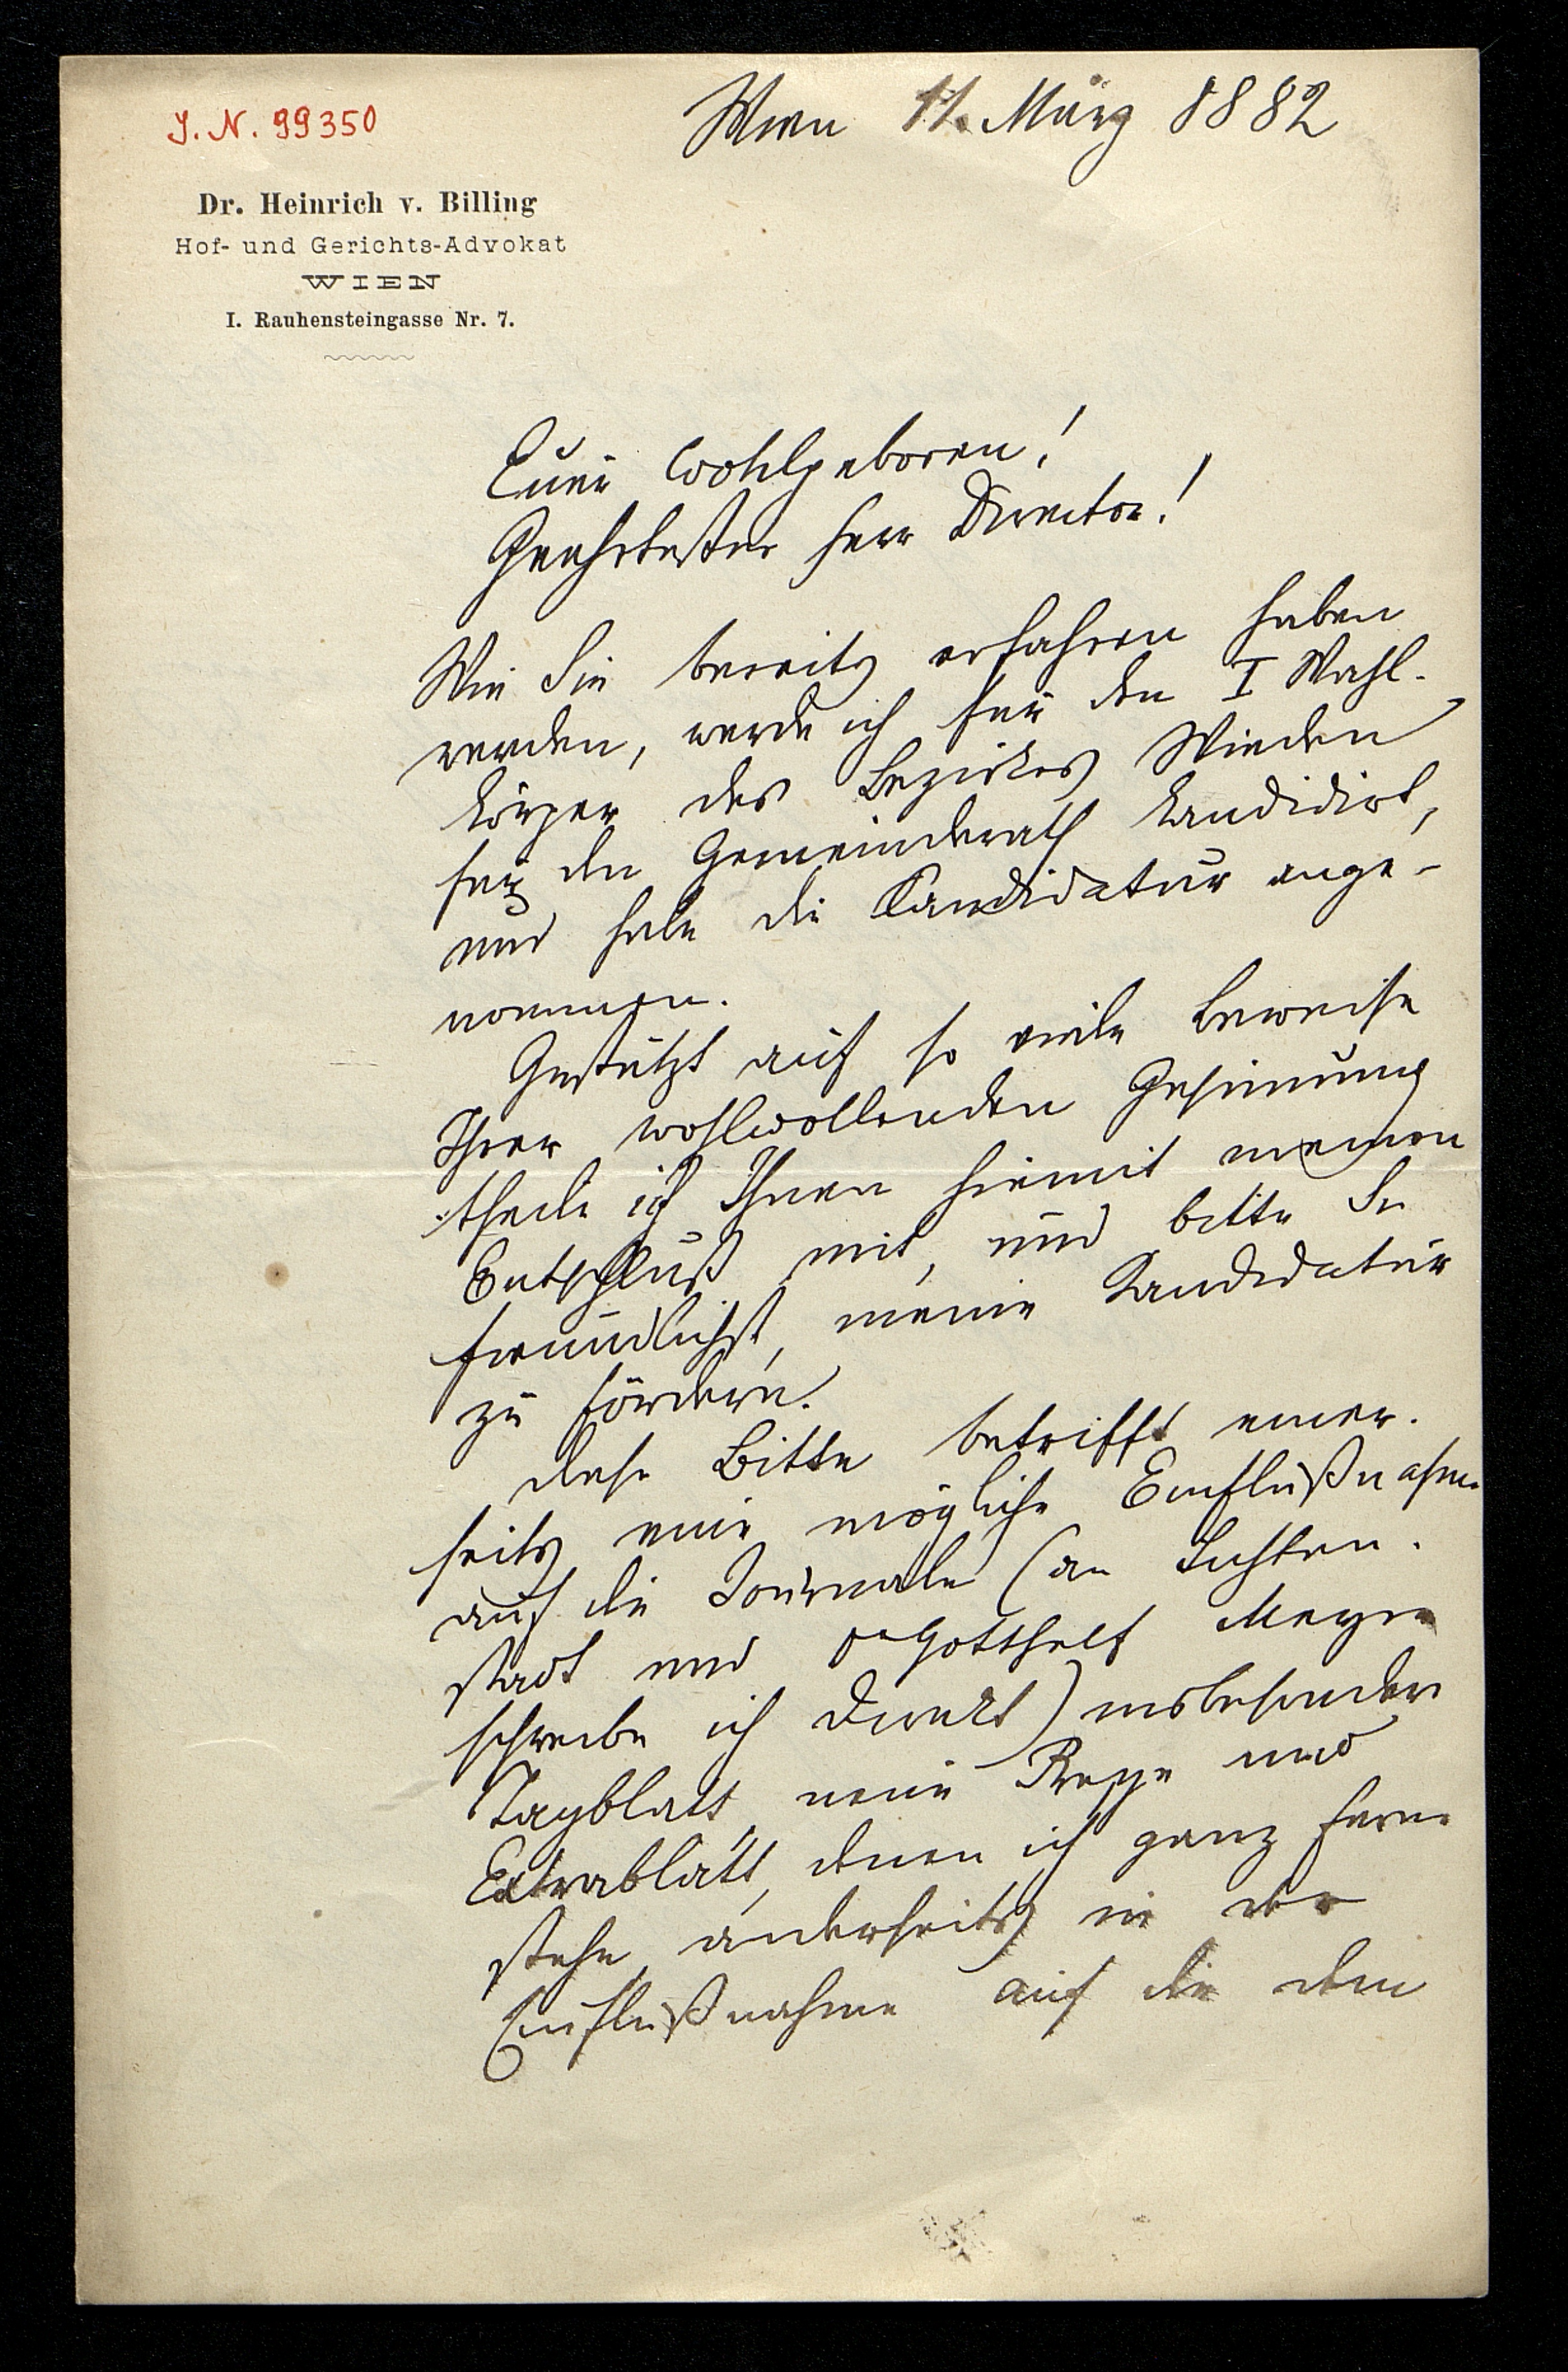 J. N. 99350
Wien 11. März 1882
Dr. Heinrich v. Billing
Hof- und Gerichts-Advokat
WIEN
I. Rauhensteingasse Nr. 7.
Euer Wohlgeboren!
Geehrtester Herr Director!
Wie Sie bereits erfahren haben
werden, werde ich für den I Wahl-
körper des Bezirkes Wieden
für den Gemeinderath kandidirt,
und habe die Candidatur ange-
nommen.
Gestützt auf so viele Beweise
Ihrer wohlwollenden Gesinnung
theile ich Ihnen hiemit meinen
Entschluß mit, und bitte Sie
freundlichst, meine Kandidatur
zu fördern.
Diese Bitte betrifft einer-
seits eine mögliche Einflußnahme
auf die Journale (an
und Gotthelf Meyer
schreibe ich direkt) insbesondere
Tagblatt, neue Presse und
Extrablatt, denen ich ganz ferne
stehe, anderseits in der
Einflußnahme auf die dem